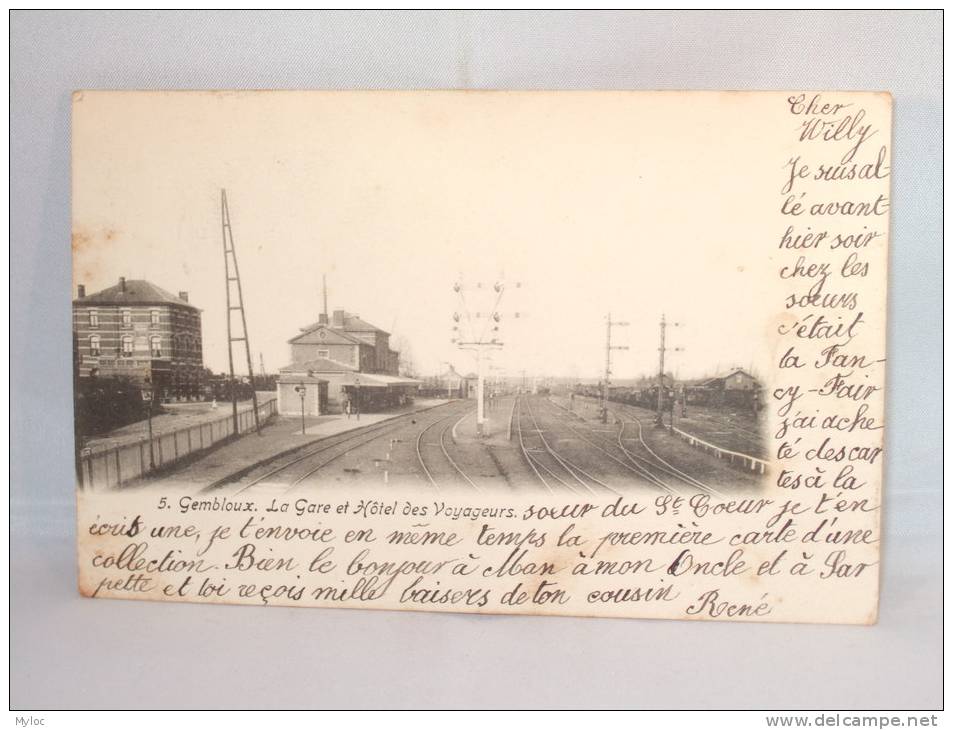 Cher
Willy
Je suis al-
lé avant-
hier soir
chez les
sœurs
c'était
la Fan-
cy-Fair
j'ai ache
té des car
tes à la
5. Gembloux. La Gare et Hôtel des Voyageurs. sœur du St Coeur je t'en
écris une, je t'envoie en même temps la première carte d'une
collection. Bien le bonjour à Man à mon Oncle et à Par
pette et toi reçois mille baisers de ton cousin
René
Myloc
www.delcampe.net